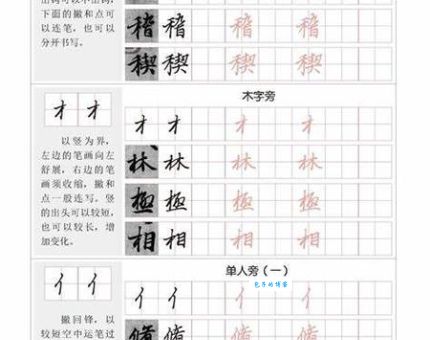 下面的撇和点可
以连笔，也可以
分开书写。
稽 稽 稽 稽
稧 稧 稧 稧
木字旁
木 木 木 木
以竖为界，
左边的笔画向左
舒展，右边的笔
画须收缩，撇和
点一般连写。竖
的出头可以较短，
也可以较长，增
加变化。
林 林 林 林
極 極 極 極
相 相 相 相
单人旁（一）
亻 亻 亻 亻 亻 亻
包子的博客
撇回锋，以
较短空中运笔过
脩 脩 脩 脩